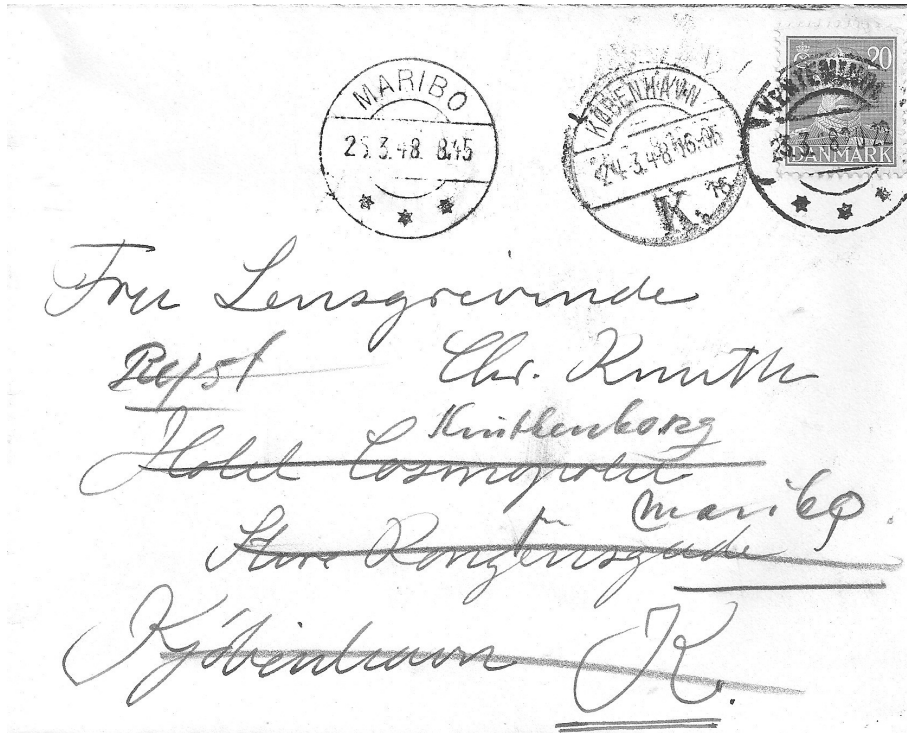 MARIBO
25.3.48. 8.45
KØBENHAVN
24.3.48.16-05
K.
20
DANMARK
Fru Lensgrevinde
Rejst
Chr. Knuth
Knuthenborg
Hotel Cosmopolit
Maribo.
Store Kongensgade
Kjöbenhavn K.